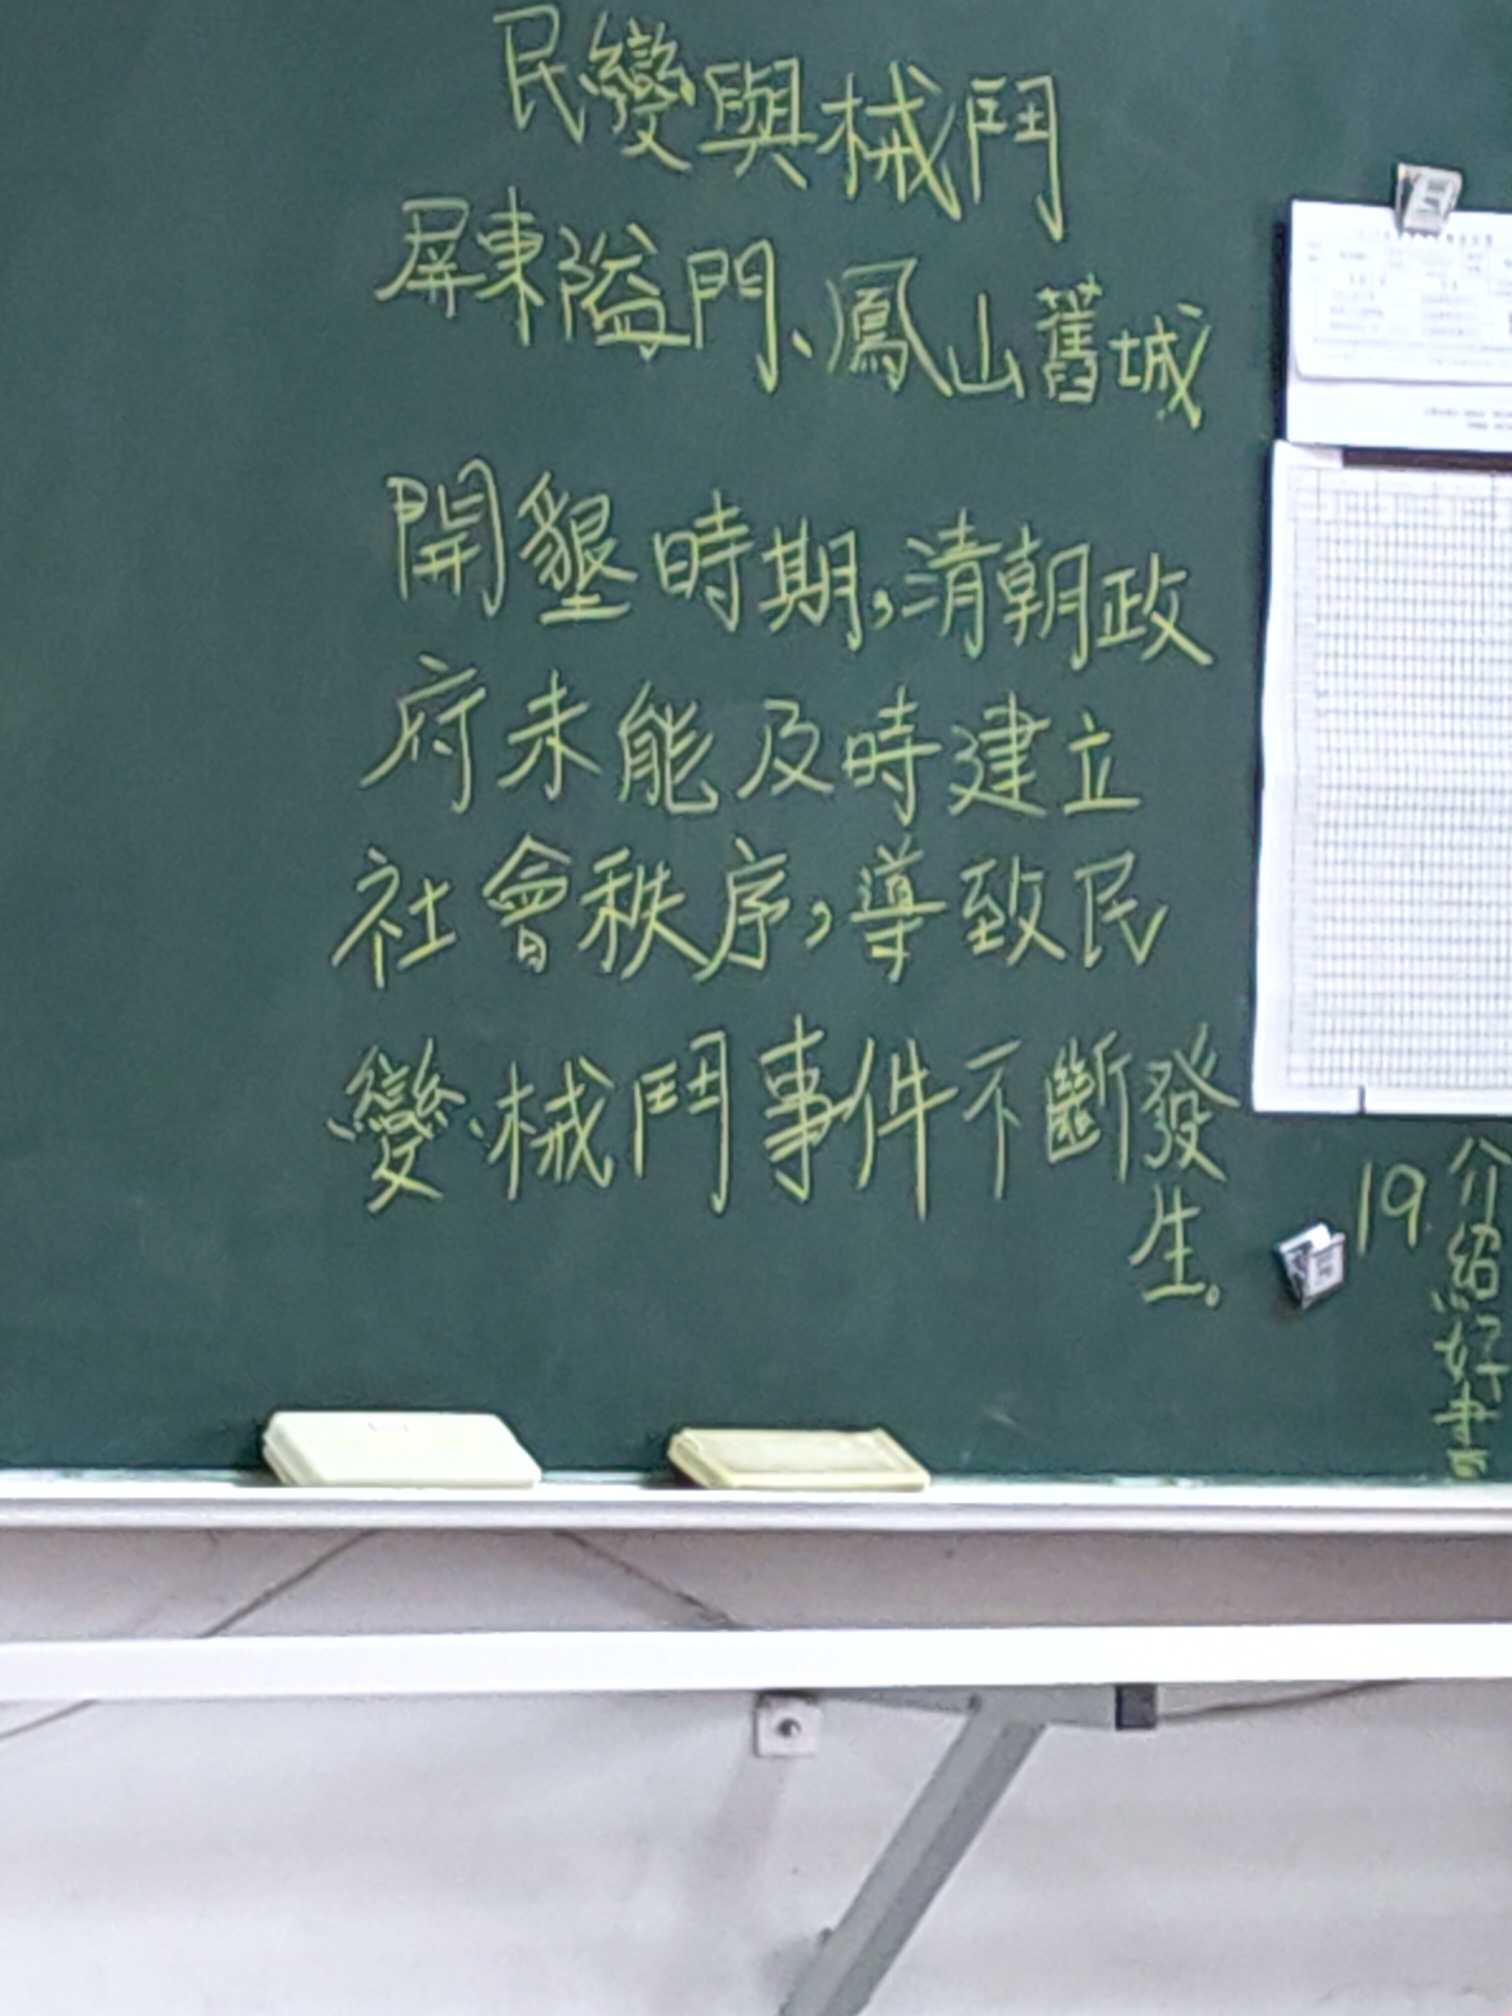 民變與械鬥
屏東隘門、鳳山舊城
開墾時期,清朝政
府未能及時建立
社會秩序,導致民
變、械鬥事件不斷發
生。
19
介紹好書